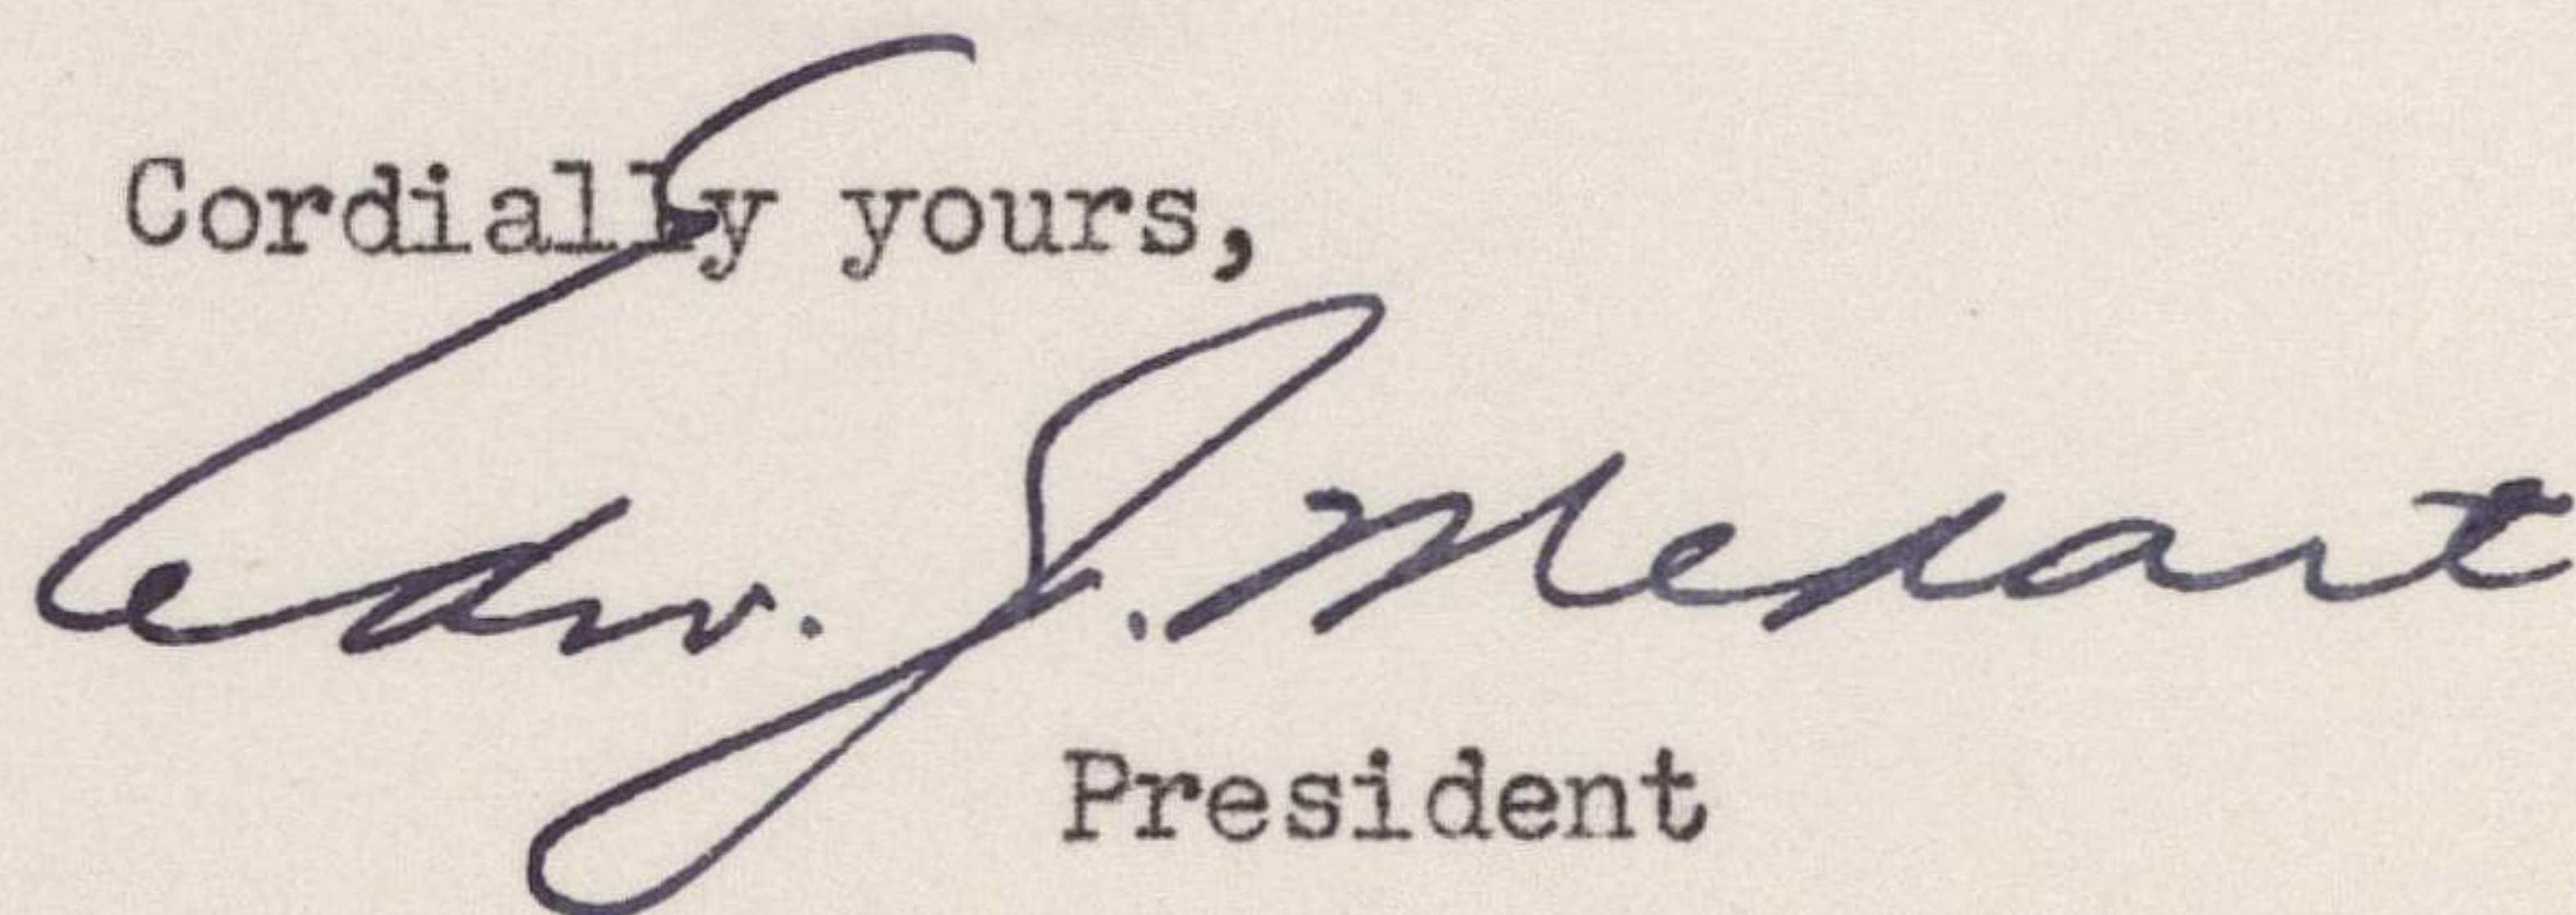 Cordially yours,
Edw. J.
President